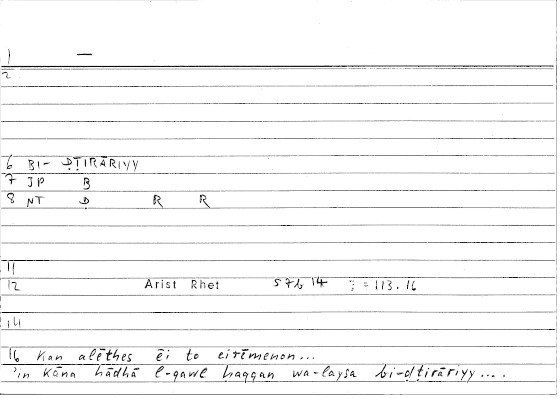 1 —
2
6 BI- ḌṬIRĀRIYY
7 JP B
8 NT Ḍ R R
11
12 Arist Rhet 57b 14 = 113.16
14
16 Kan alēthes ēi to eirēmenon...
'in kāna hādhā l-qawl ḥaqqan wa-laysa bi-ḍṭirāriyy....